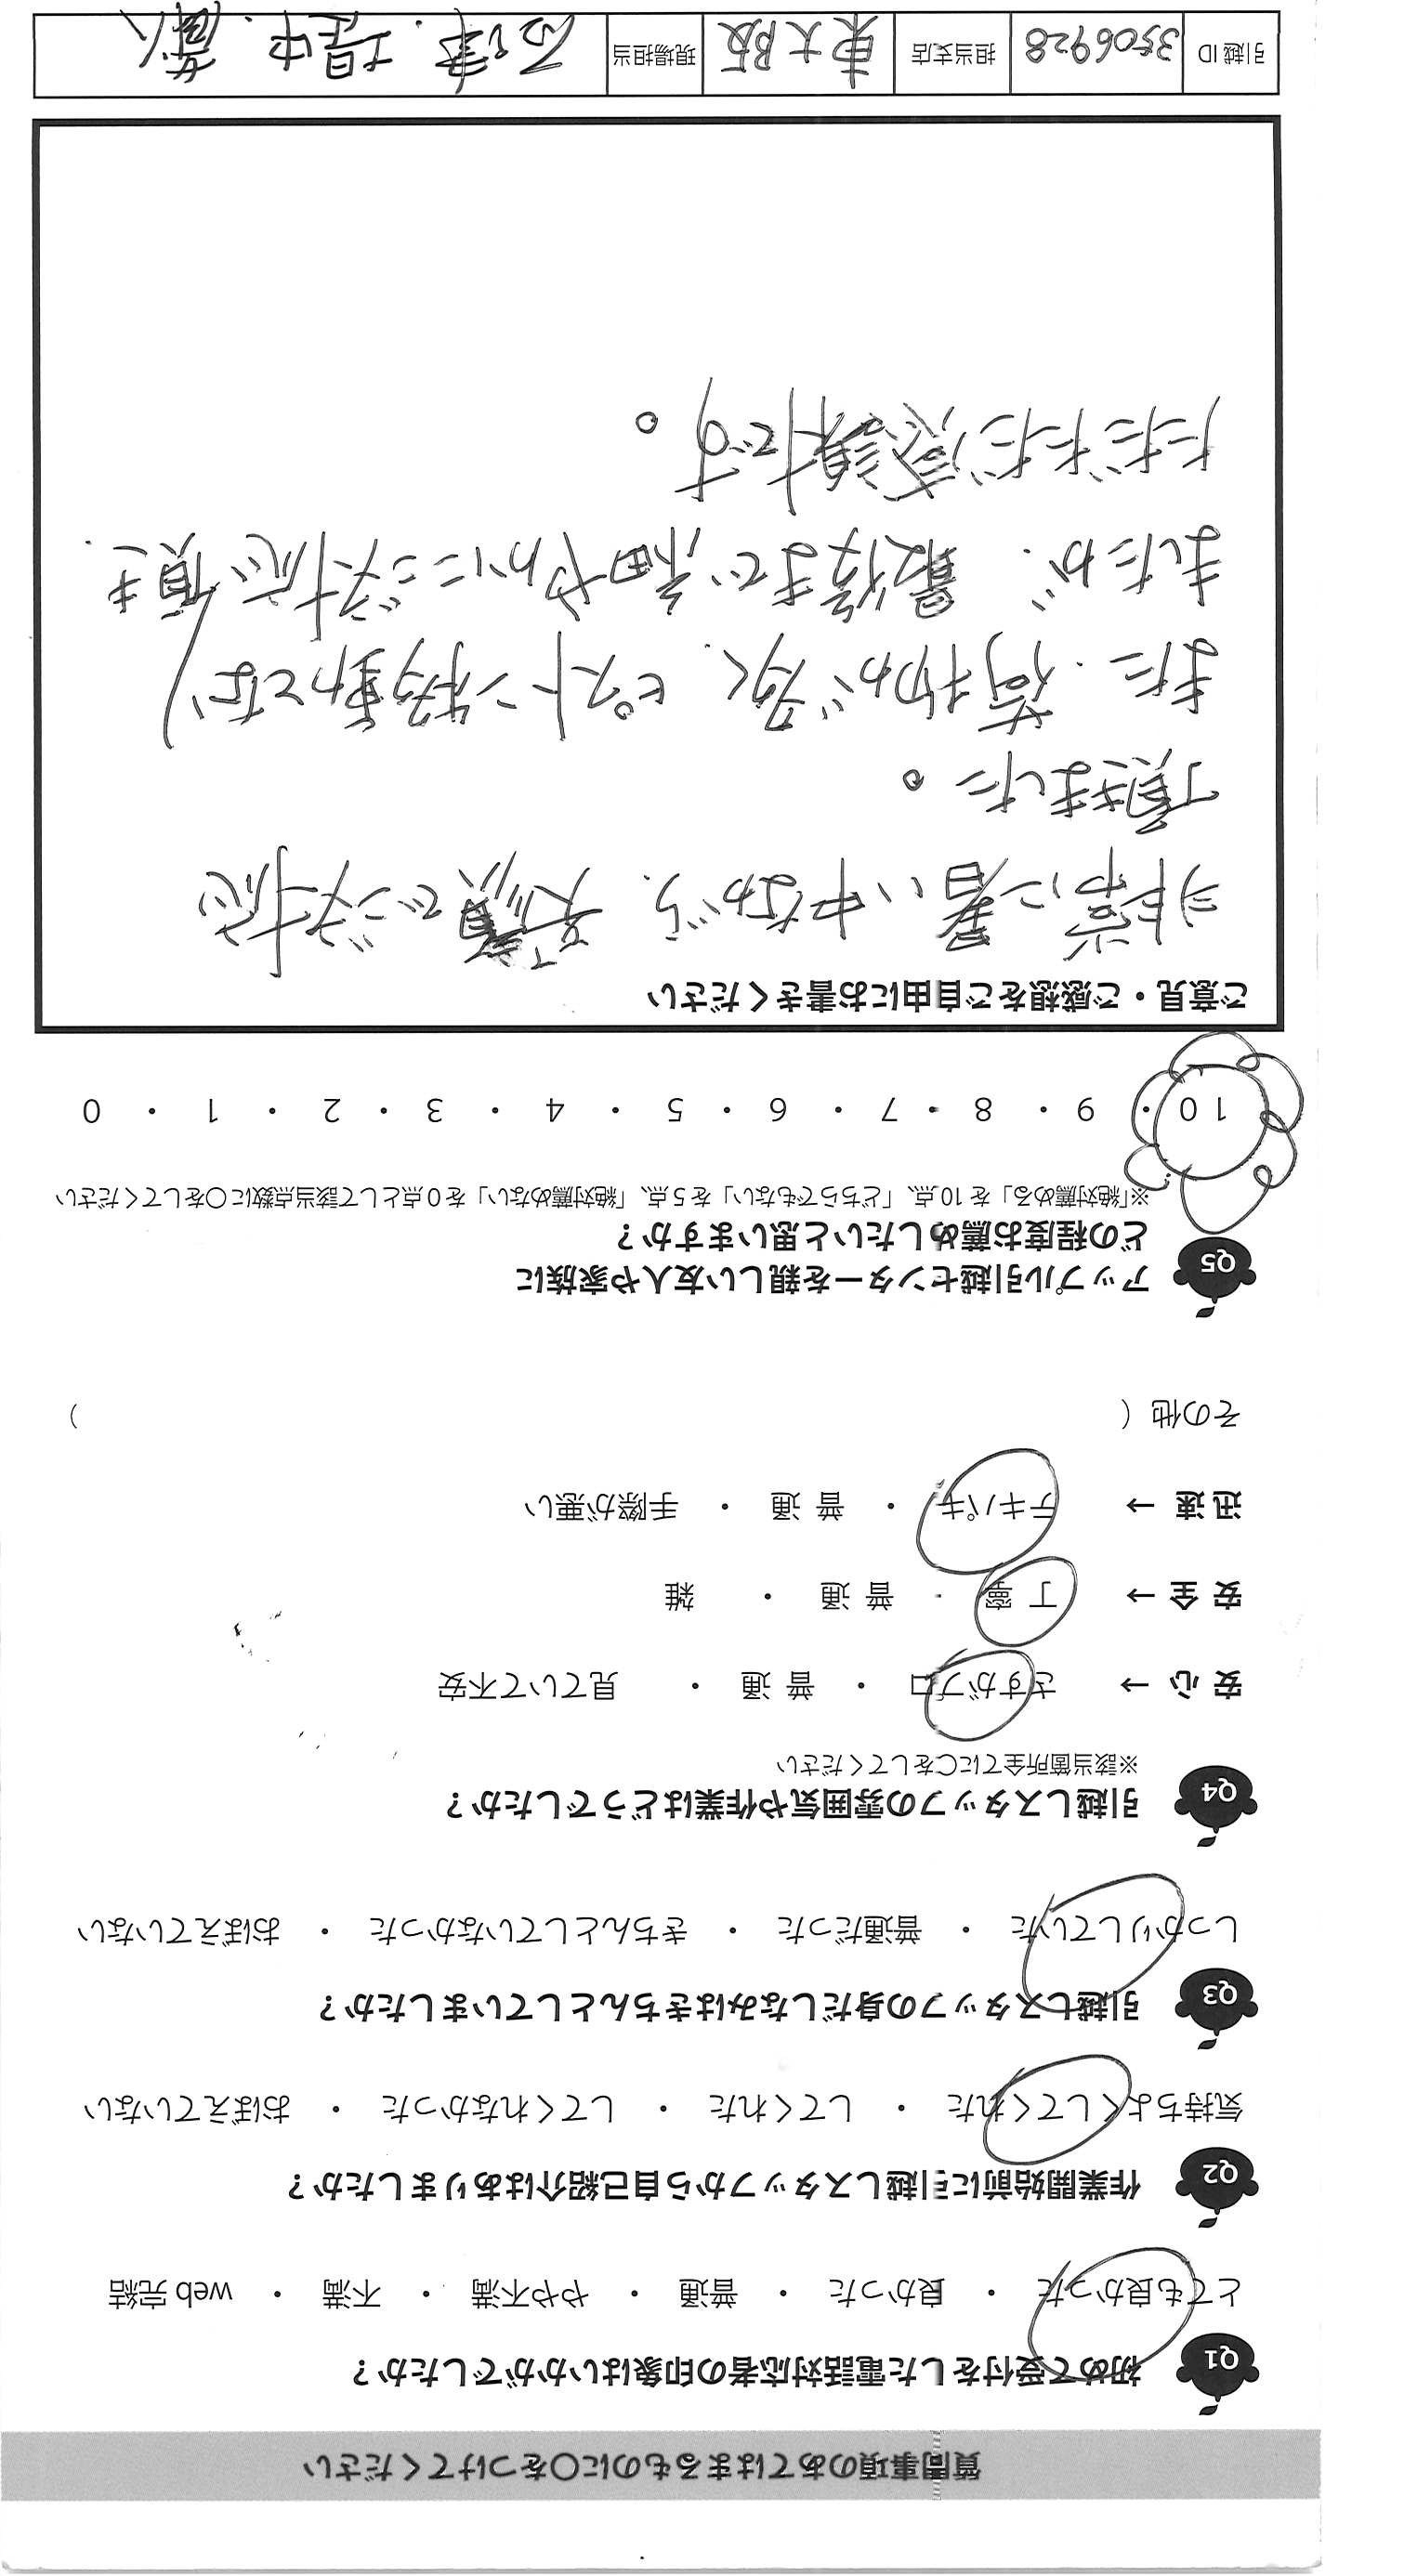 質問事項のあてはまるものに〇をつけてください
Q1 初めて受付をした電話対応者の印象はいかがでしたか？
とても良かった ・ 良かった ・ 普通 ・ やや不満 ・ 不満 ・ web 完結
Q2 作業開始前に引越しスタッフから自己紹介はありましたか？
気持ちよくしてくれた ・ してくれた ・ してくれなかった ・ おぼえていない
Q3 引越しスタッフの身だしなみはきちんとしていましたか？
しっかりしていた ・ 普通だった ・ きちんとしていなかった ・ おぼえていない
Q4 引越しスタッフの雰囲気や作業はどうでしたか？
※該当箇所全てに〇をしてください
安心 → さすがプロ ・ 普通 ・ 見ていて不安
安全 → 丁寧 ・ 普通 ・ 雑
迅速 → テキパキ ・ 普通 ・ 手際が悪い
その他（ ）
Q5 アップル引越センターを親しい友人や家族に
どの程度お薦めしたいと思いますか？
※「絶対薦める」を10点、「どちらでもない」を5点、「絶対薦めない」を0点として該当点数に〇をしてください
10 ・ 9 ・ 8 ・ 7 ・ 6 ・ 5 ・ 4 ・ 3 ・ 2 ・ 1 ・ 0
ご意見・ご感想をご自由にお書きください
非常に暑い中ながら、笑顔でご対応
頂きました。
また、荷物が多く、ピストン移動となり
ましたが、最後まで細やかにご対応頂き、
ただただ感謝です。
引越ID 3506928 担当支店 東大阪 現場担当